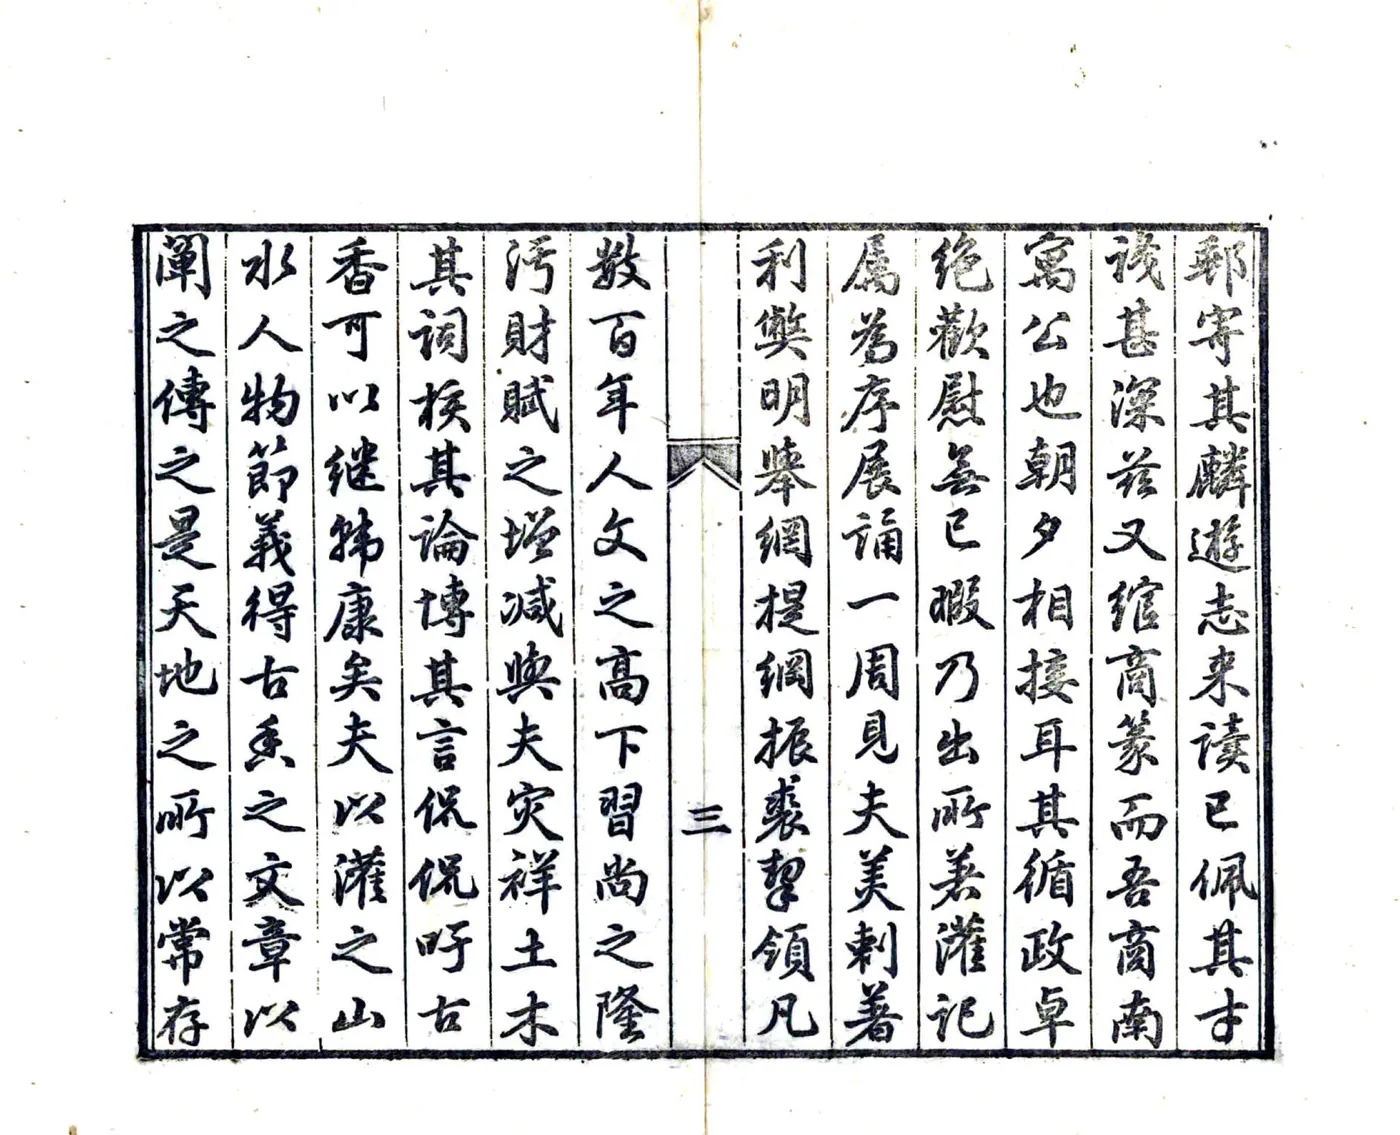 郵寄其麟遊志来读已佩其才
识甚深兹又綰商篆而吾商南
寓公也朝夕相接耳其循政卓
绝歡慰無已暇乃出所著灌记
属為序展诵一周見夫美刺著
利獘明举網提綱振裘挈領凡
三
数百年人文之高下習尚之隆
污財賦之增减與夫灾祥土木
其词核其論博其言侃侃吁古
香可以继韩康矣夫以灌之山
水人物節義得古香之文章以
阐之傳之是天地之所以常存